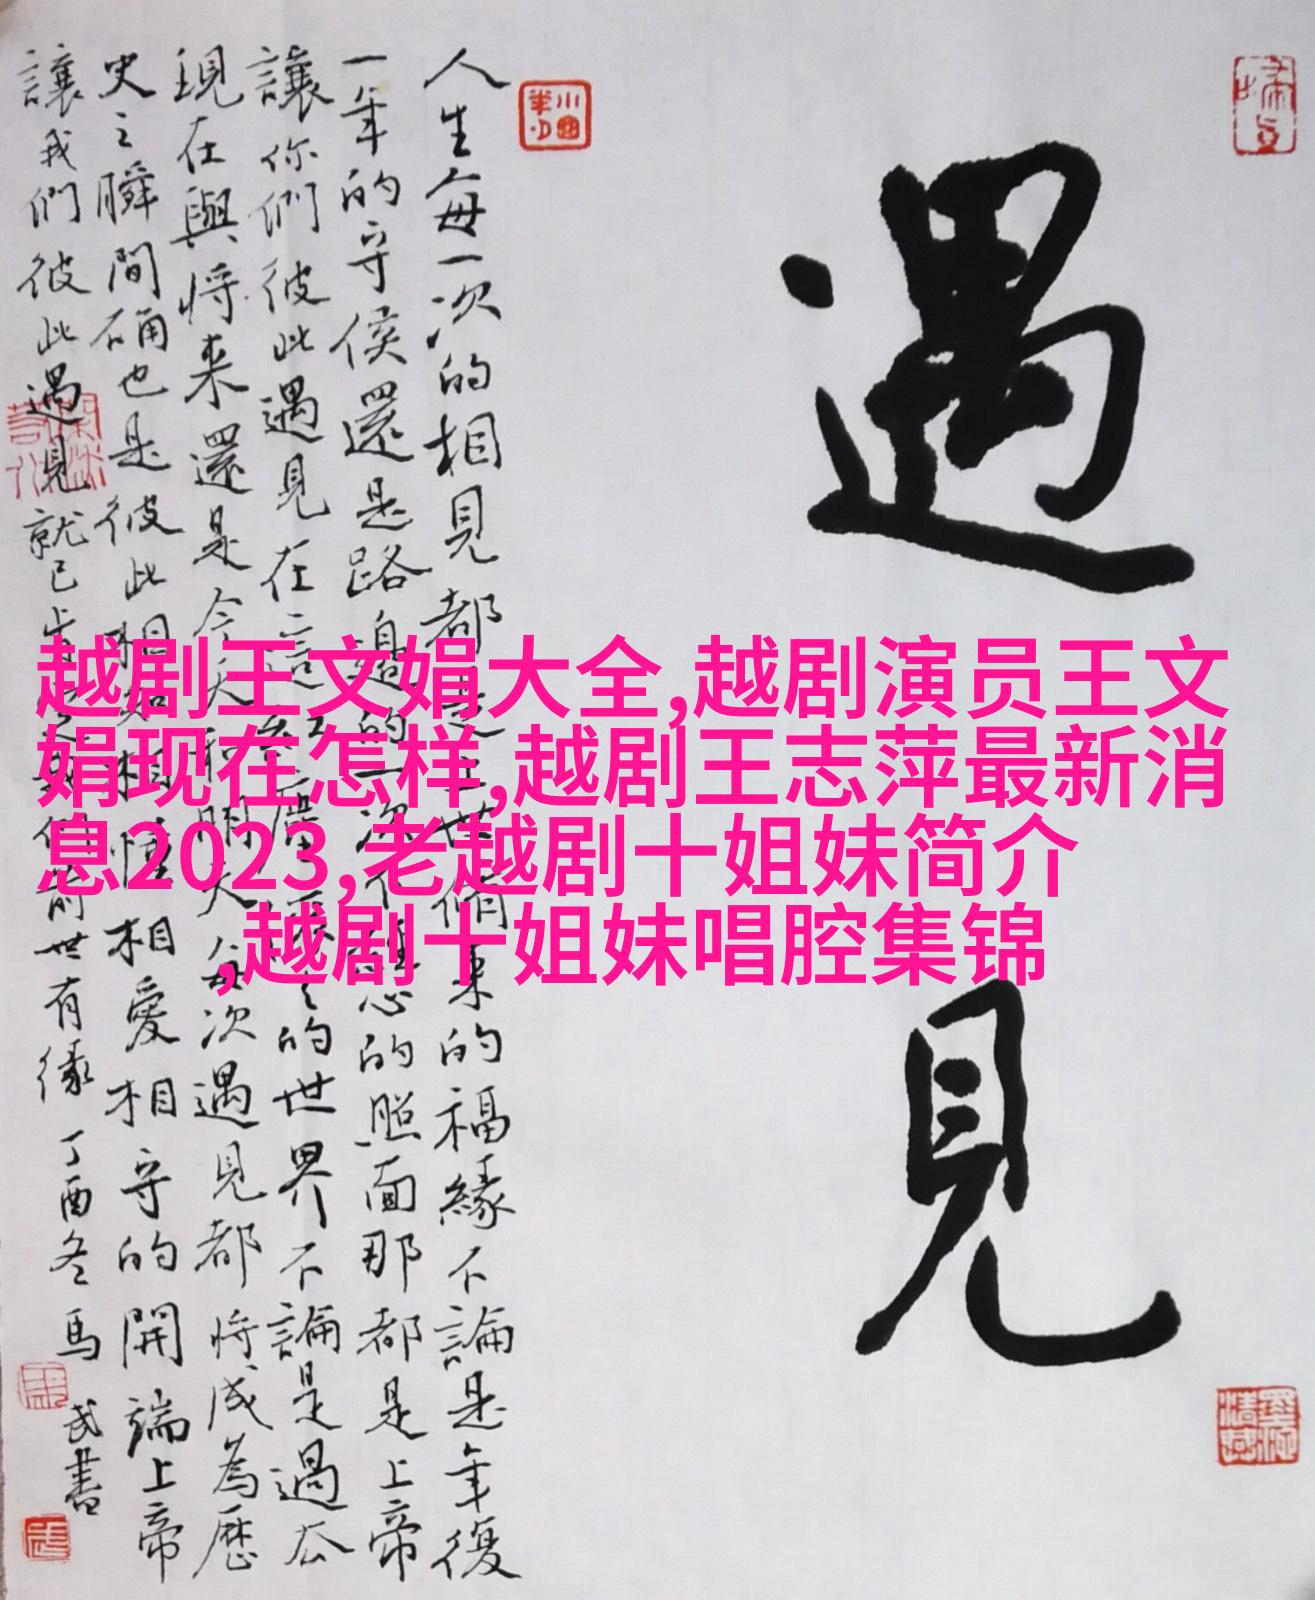 越剧王文娟大全,越剧演员王文
娟现在怎样,越剧王志萍最新消
息2023,老越剧十姐妹简介
,越剧十姐妹唱腔集锦
遇見
人生每一次的相見都是上世修来的福緣不論是年復
一年的守侯還是路邊的一次不經意的照面那都是上帝
讓你們彼此遇見在這的世界不論是過去
現在與將来還是今天和明天每次遇見都將成為歷
史之瞬間确也是彼此相知相惜相愛相守的開端上帝
讓我們彼此遇見就已前世有缘 丁酉冬馬武書